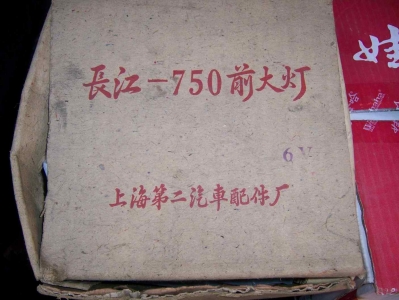 長江-750前大灯
6V
上海第二汽車配件厂
娃